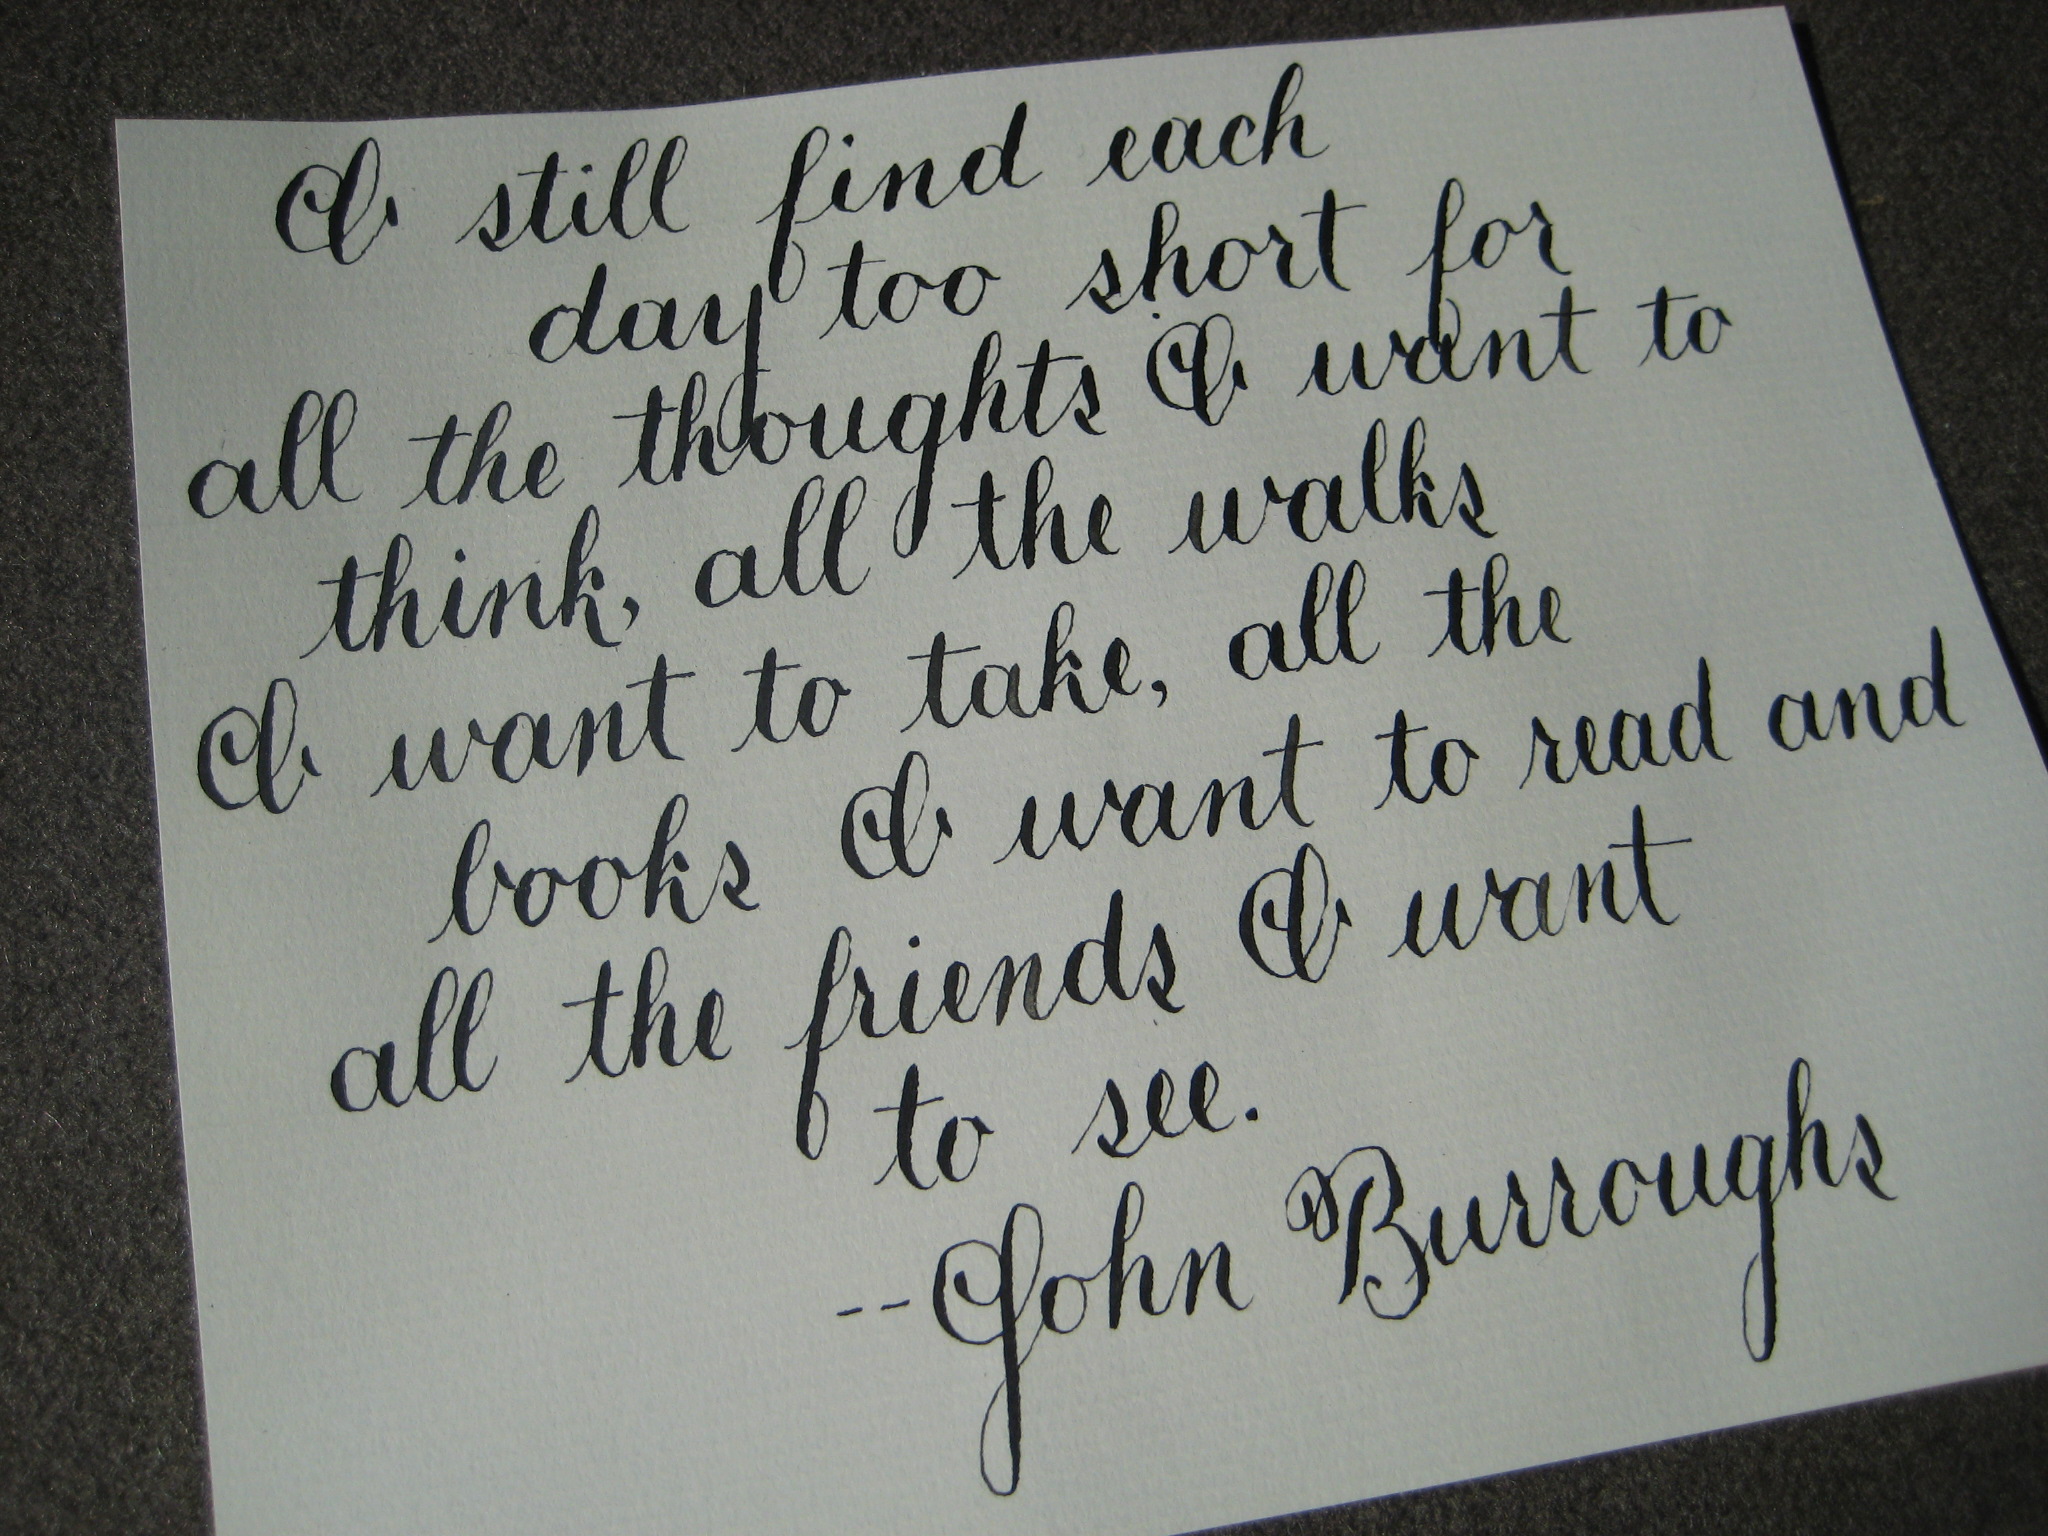 I still find each
day too short for
all the thoughts I want to
think, all the walks
I want to take, all the
books I want to read and
all the friends I want
to see.
--John Burroughs